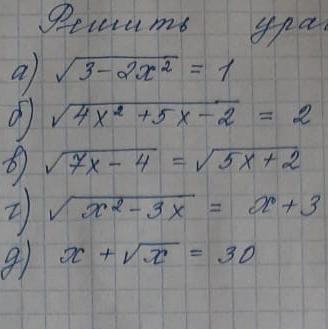 Решить ура
а) √(3 - 2x²) = 1
б) √(4x² + 5x - 2) = 2
в) √(7x - 4) = √(5x + 2)
г) √(x² - 3x) = x + 3
д) x + √x = 30